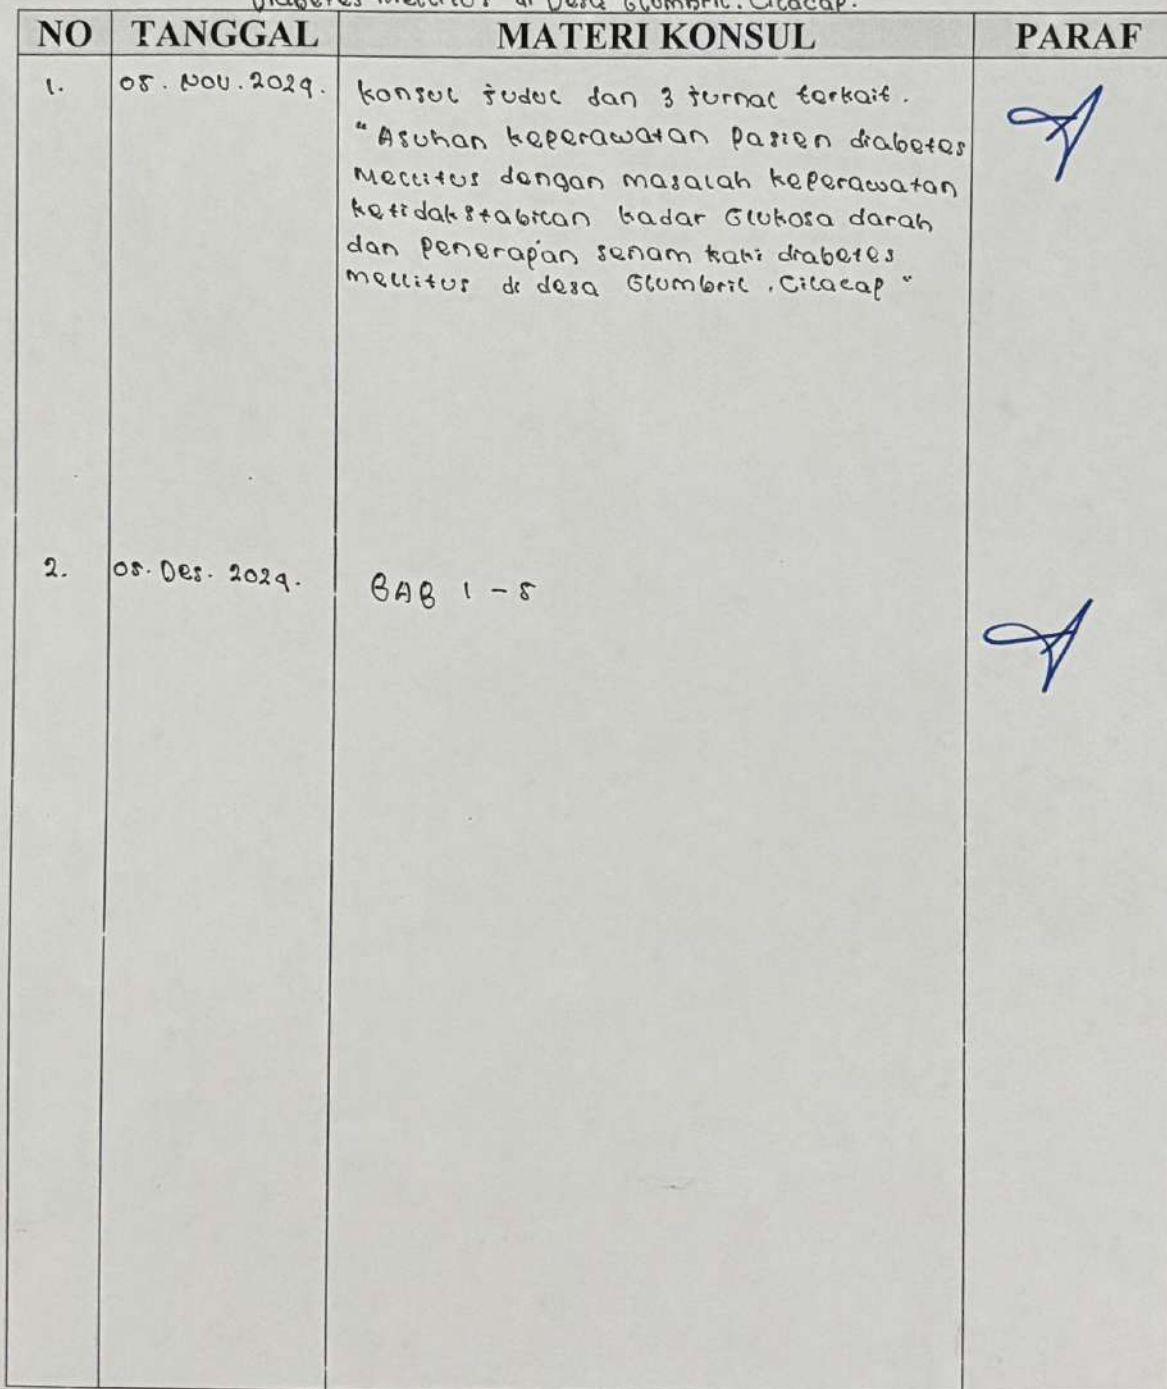 Diabetes Mellitus di Desa Glombril. Cilacap.
NO TANGGAL MATERI KONSUL PARAF
1. 05. Nov. 2024. konsul judul dan 3 jurnal terkait.
"Asuhan keperawatan pasien diabetes
mellitus dengan masalah keperawatan
ketidakstabilan kadar Glukosa darah
dan penerapan senam kaki diabetes
mellitus di desa Glombril, Cilacap"
2. 05. Des. 2024. BAB 1-5